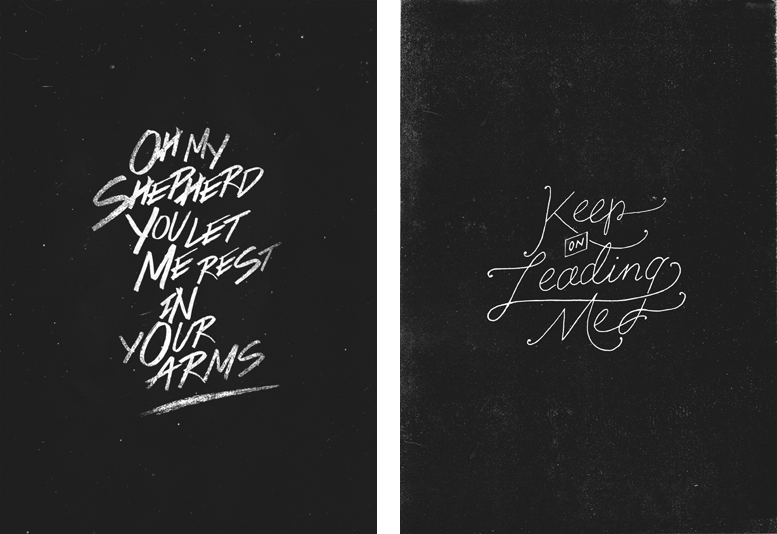 OH MY
SHEPHERD
YOU LET
ME REST
IN
YOUR
ARMS
Keep
ON
Leading
Me